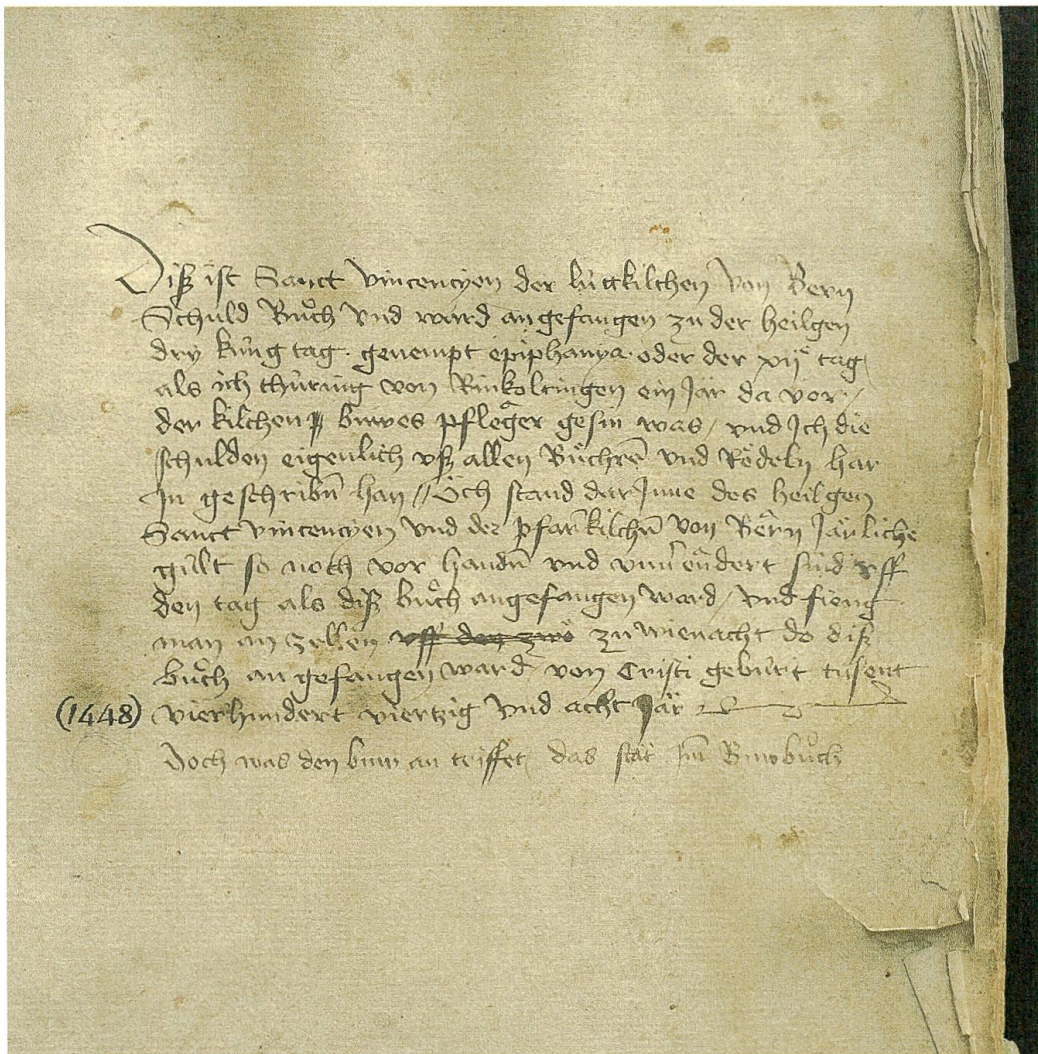 Diß ist Sanct Vincencyen der lu̍tkilchen von Bern
Schuld Bůch vnd ward angefangen zu der heilgen
dry ku̍ng tag. genempt epiphanya. oder der xij tag
als ich thu̍ring von Rinkoltingen ein Jar da vor
der kilchen buwes pfleger gesin was / vnd Ich die
schulden eigenlich vß allen Bu̍chren vnd Ro̍deln har
In geschribn̄ han // Och stand dar Inne des heilgen
Sanct vincencyen vnd der pfarrkilchn̄ von Bern Jarliche
gu̍lt so noch vor handn̄ vnd vnuerendert sind vff
den tag als diß bůch angefangen ward / vnd fieng
man an zellen vff den zwo zu wienacht do diß
bůch angefangen ward von Cristi geburt tusent
(1448) vierhundert viertzig vnd acht Jar
Doch was den buw an triffet / das stat Im Buwbůch